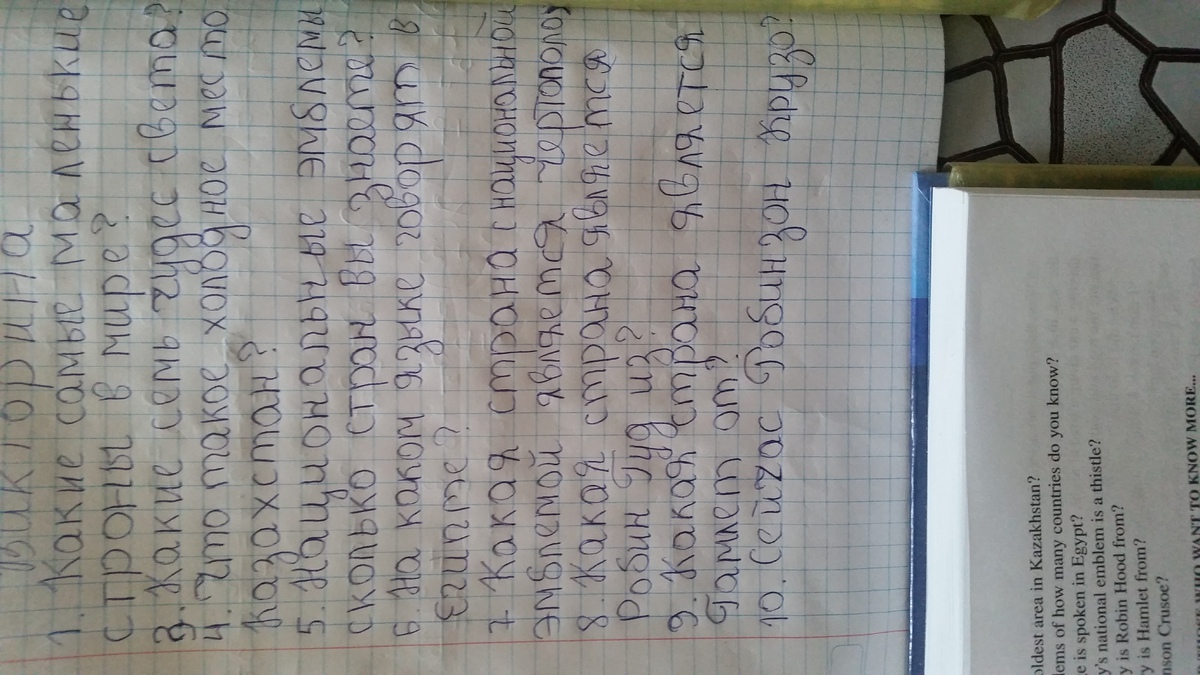 Викторина
1. Какие самые маленькие
строны в мире?
3. Какие семь чудес света?
4. Что такое холодное место
Казахстан?
5. Национальные эмблемы
сколько стран вы знаете?
6. На каком языке говорят в
Египте?
7 Какая страна с национальной
эмблемой является чертополох
8. Какая страна является
Робин Гуд из?
9. Какая страна является
Гамлет от?
10. Сейчас Робинзон Крузо?
oldest area in Kazakhstan?
lems of how many countries do you know?
e is spoken in Egypt?
y's national emblem is a thistle?
y is Robin Hood from?
y is Hamlet from?
nson Crusoe?
WHO WANT TO KNOW MORE...